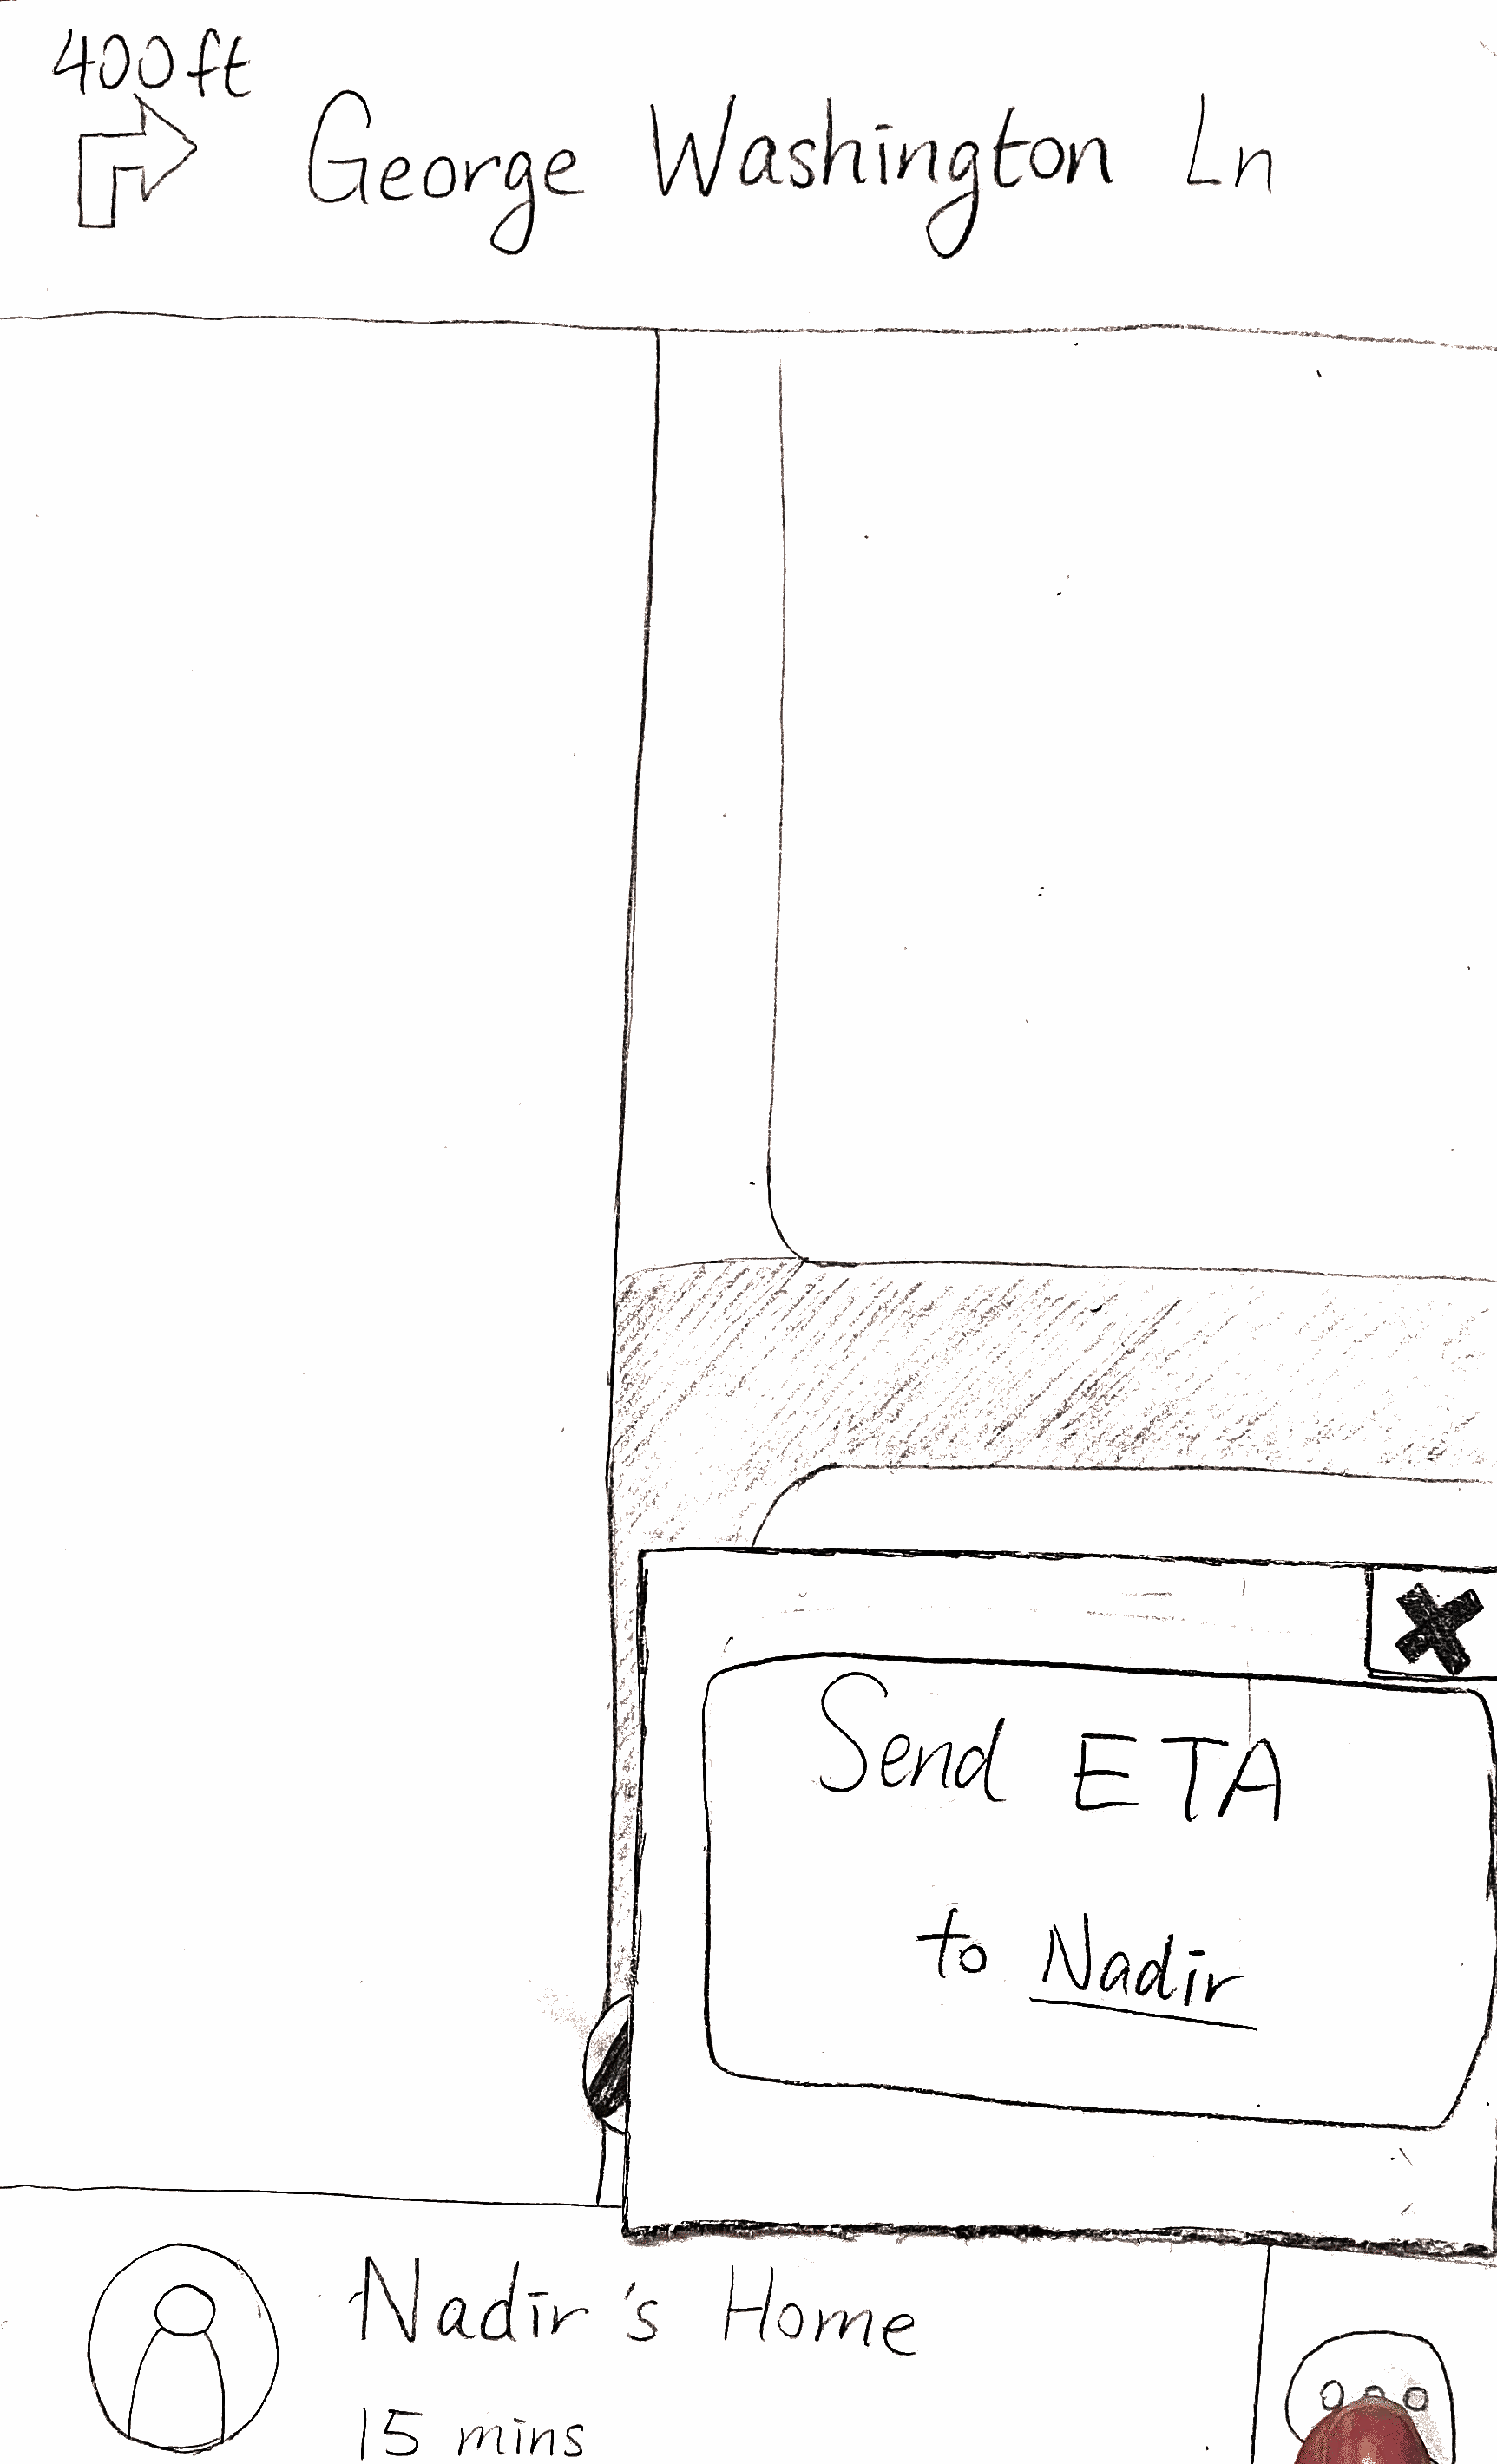 400ft
George Washington Ln
Send ETA
to Nadir
Nadir's Home
15 mins